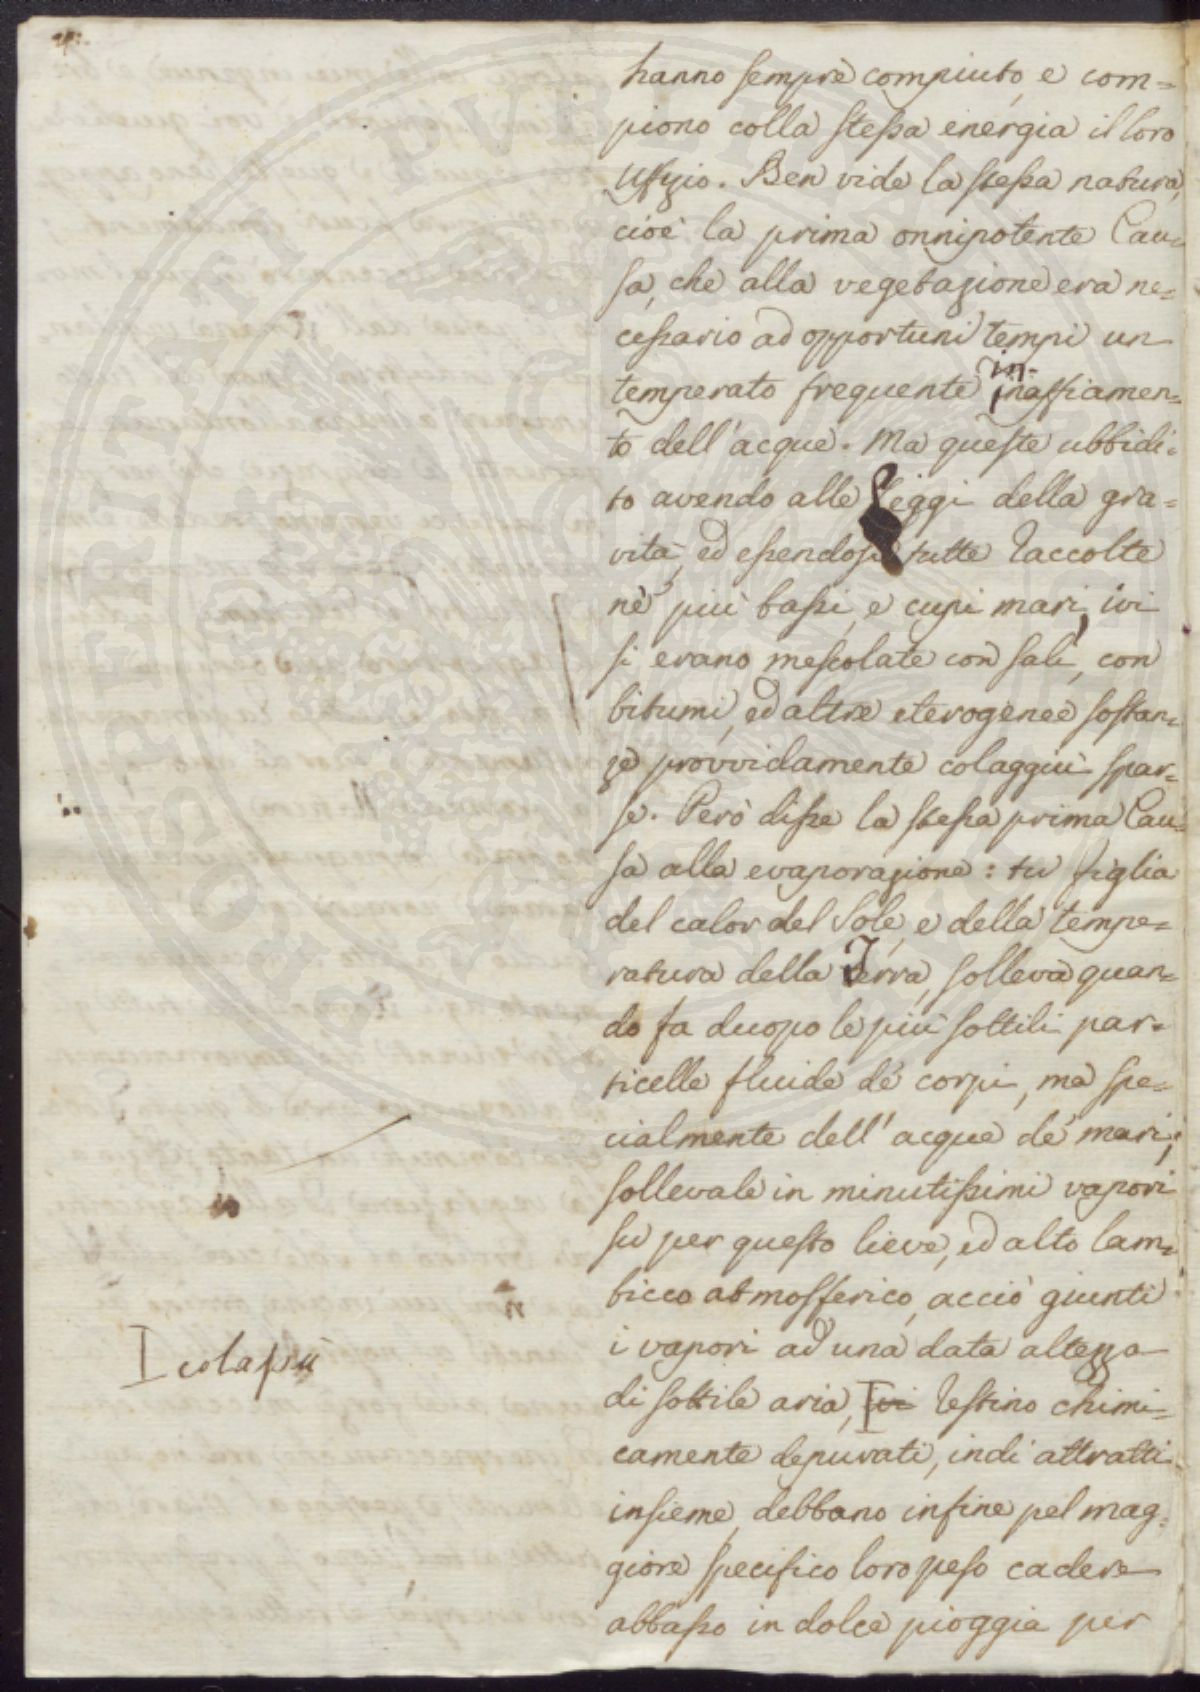 hanno sempre compiuto, e com=
piono colla stessa energia il loro
Uffizio. Ben vide la stessa natura,
cioè la prima onnipotente Cau=
sa, che alla vegetazione era ne=
cessario ad opportuni tempi un
temperato frequente in=naffiamen=
to dell'acque. Ma queste ubbidi=
to avendo alle leggi della gra=
vità, ed essendosi tutte raccolte
nè più bassi, e cupi mari, ivi
si erano mescolate con sali, con
bitumi, ed altre eterogenee sostan=
ze provvidamente colaggiù spar=
se. Però disse la stessa prima Cau=
sa alla evaporazione: tu figlia
del calor del Sole, e della tempe=
ratura della Terra, solleva quan=
do fa duopo le più sottili par=
ticelle fluide de' corpi, ma spe=
cialmente dell'acque de' mari;
sollevale in minutissimi vapori
su per questo lieve, ed alto lam=
bicco atmosferico, acciò giunti
i vapori ad una data altezza
di sottile aria, ivi restino chimi=
camente depurati, indi attratti
insieme, debbano infine pel mag=
giore specifico loro peso cadere
abbasso in dolce pioggia per
I colassù
PROSPERITATI PVBLICAE